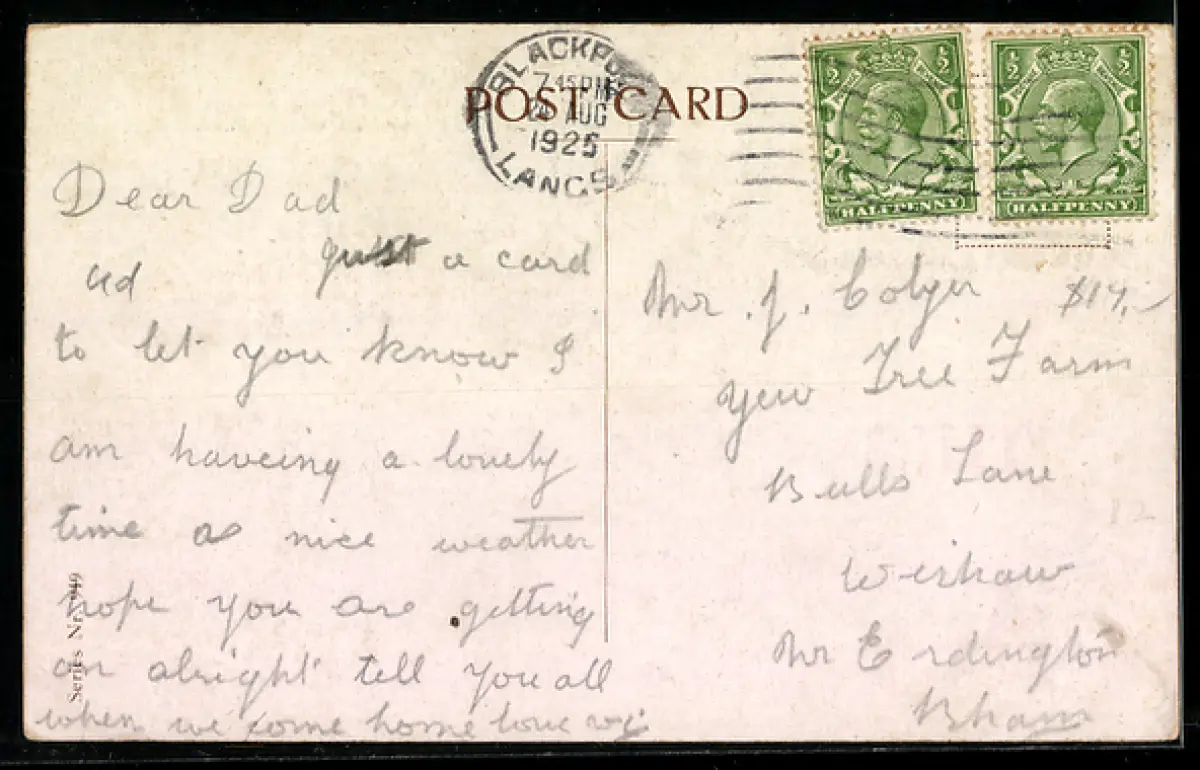 POST CARD
BLACKPO
7.45 PM
AUG
1925
LANCS
½ ½
HALFPENNY
½ ½
HALFPENNY
Dear Dad
just a card
to let you know I
am haveing a lovely
time as nice weather
hope you are getting
on alright tell you all
when we come home love
Mr. J. Colyer
$14,-
Yew Tree Farm
Bulls Lane
Wishaw
Nr Erdington
Bham
12
Series Nr. 949